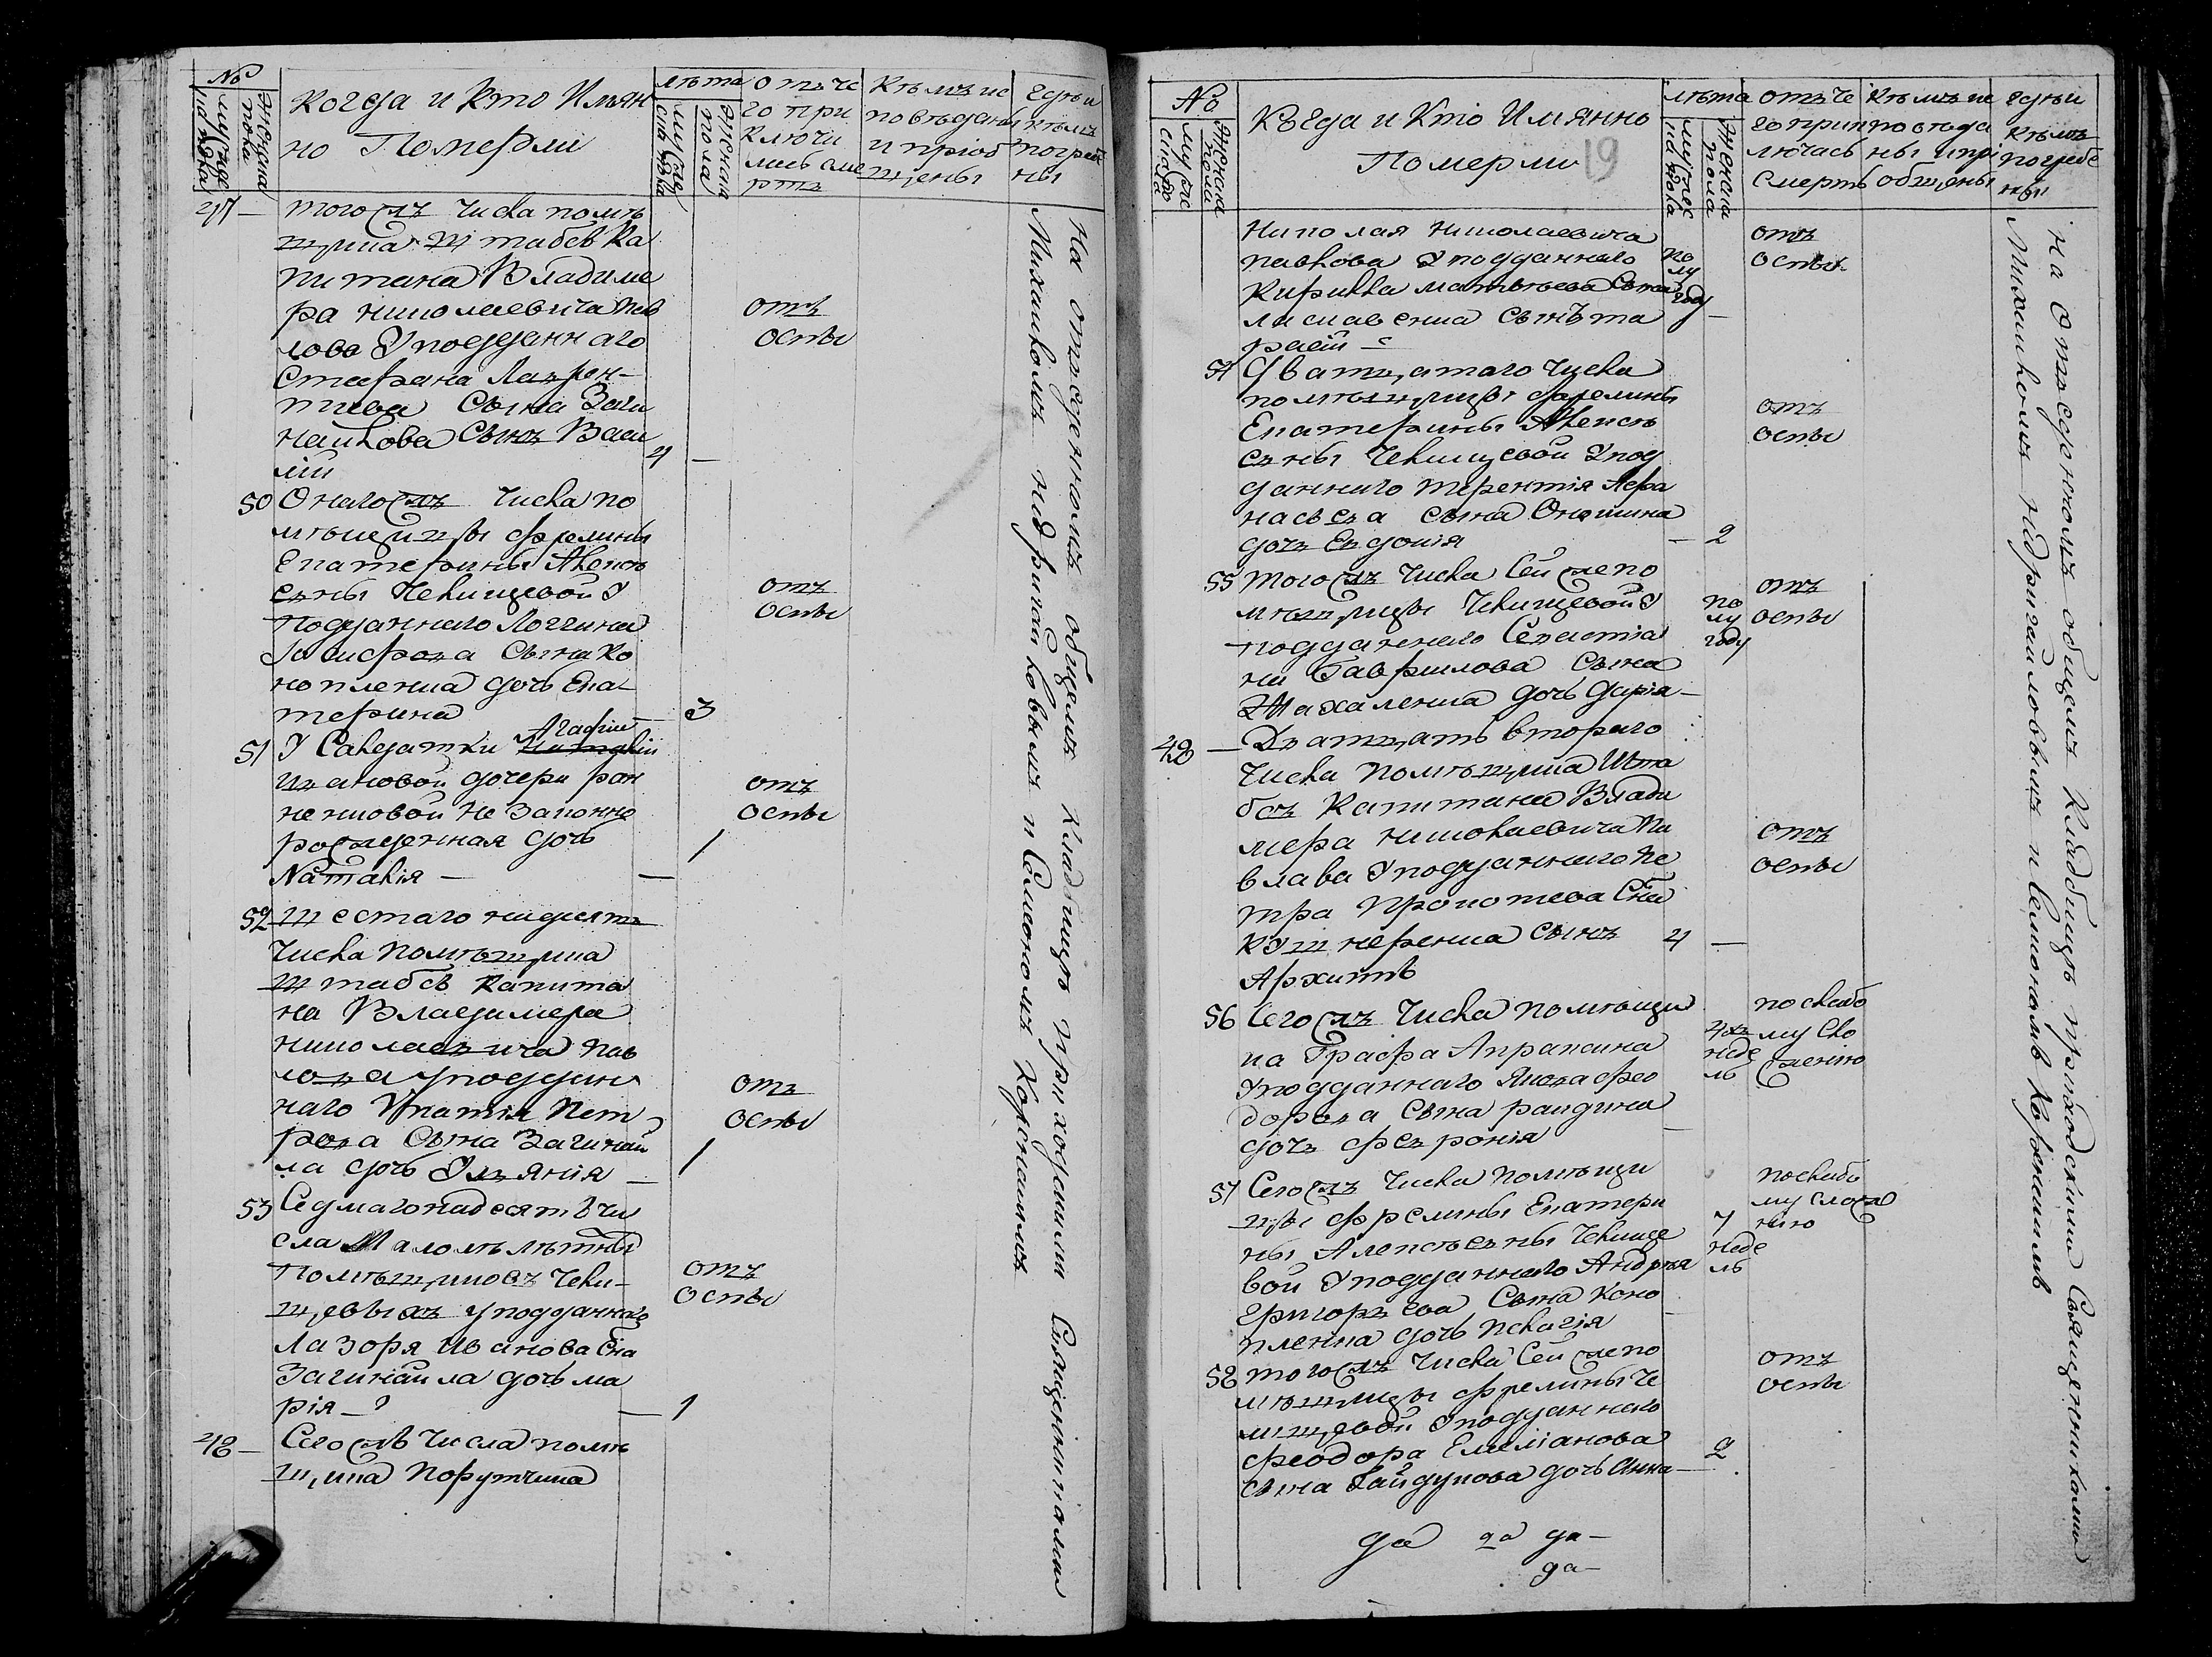 №
мужеска пола
женска пола
Когда и Кто Имян
но Померли
лѣта
мужеска пола
женска пола
Отъ че
го при
Ключи
лись сме
рть
Кѣмъ ис
повѣданы
и приоб
щены
Гдѣ и
кѣмъ
погреб
ны
47 — Того жъ Числа помѣ
щика Штабсъ Ка
питана Владиме
ра Николаевича Пав
лова Уподданнаго
Стефана Лаврен-
тиева Сына Заги
найлова Сынъ Васи
лій
4 —
отъ
оспы
50 Онаго жъ Числа по
мѣщицы фрелины
Екатерины Алексѣ
евны Чекищевой У
подданнаго Логгина
сына Ко
нопленка дочь Ека-
терина — 3
отъ
оспы
51 У Салдатки Агафіи
Ивановой дочери
не Законно
рожденная дочь
Наталія — 1
отъ
оспы
52 Шестаго надцеять
Числа Помѣщика
Штабсъ Капита
на Владимера
Николаевича Пав
лова уподдан
наго Ипатія Пет
рова Сына Загинай
ла дочь Ульянія — 1
отъ
оспы
53 Седмагонадесять чи
сла Малолѣтны
Помѣщиковъ Чеки-
щевыхъ уподданнаго
Лазоря Иванова Сна
Загинайла дочь Ма
рія — 1
отъ
оспы
48 — Сего жъ Числа помѣ
щика Порутчика
На отъведенномъ общемъ кладбищѣ приходскими Священниками
Михаиломъ Нидригайловымъ и Симеономъ Корженимъ
№
мужеска пола
женска пола
Когда и Кто Имянно
Померли
19
лѣта
мужеска пола
женска пола
отъ че
го прик
лючась
Смерть
Кѣмъ ис
повѣда
ны и прі
общены
гдѣ и
Кѣмъ
погребе
ны
Николая Николаевича
Павлова Уподданнаго
Кирилла Матвѣева Сына
Сынъ Та
расій
по
лу
году —
отъ
оспы
54 Дватцатаго Числа
помѣщицы фрелины
Екатерины Алексѣ
евны Чекищевой Упод
даннаго Терентія Афа
насьева сына
дочь Евдокія — 2
отъ
оспы
55 Того жъ Числа Сей же по
мѣщицы Чекищевой У
подданнаго Севастіа
на Гаврилова Сына
дочь Дарія —
по
лу
году
отъ
оспы
49 — Дватцать втораго
Числа Помѣщика Шта
бсъ Капитана Влади
мера Николаевича Па
влава Уподданнаго Пе
тра Прокопіева Сна
Кушнеренка сынъ
Архипъ
4 —
отъ
оспы
56 Сего жъ Числа Помѣщи
ка Графа Апраксина
Уподданнаго Якова Фео
дорова Сына
дочь Февронія —
4хъ
неде
ль
по слабо
му Сло
женію
57 Сего жъ Числа Помѣщи
цы фрелины Екатери
ны Алексѣевны Чекище
вой Уподданнаго Андрея
Григорьева Сына Коно
пленка дочь Пелагія —
7
неде
ль
послабо
му сложе
нію
58 Того жъ Числа Сей же по
мѣщицы фрелины Че
кищевой Уподданнаго
Феодора Емеліанова
сына Гайдукова дочь Анна — 2
отъ
оспы
да да да —
да —
На Отъведенномъ общемъ Кладбищѣ приходскими Священниками
Михаиломъ Нидригайловымъ и Симеономъ Корженимъ